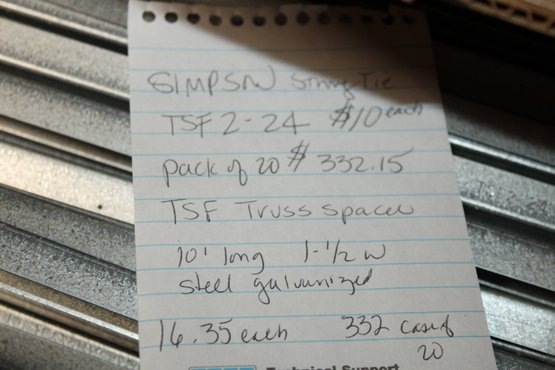 SIMPSON Strong Tie
TSF 2-24 $10 each
pack of 20 $332.15
TSF Truss spacer
10' long 1-1/2 w
steel galvanized
16.35 each 332 case of
20
Technical Support